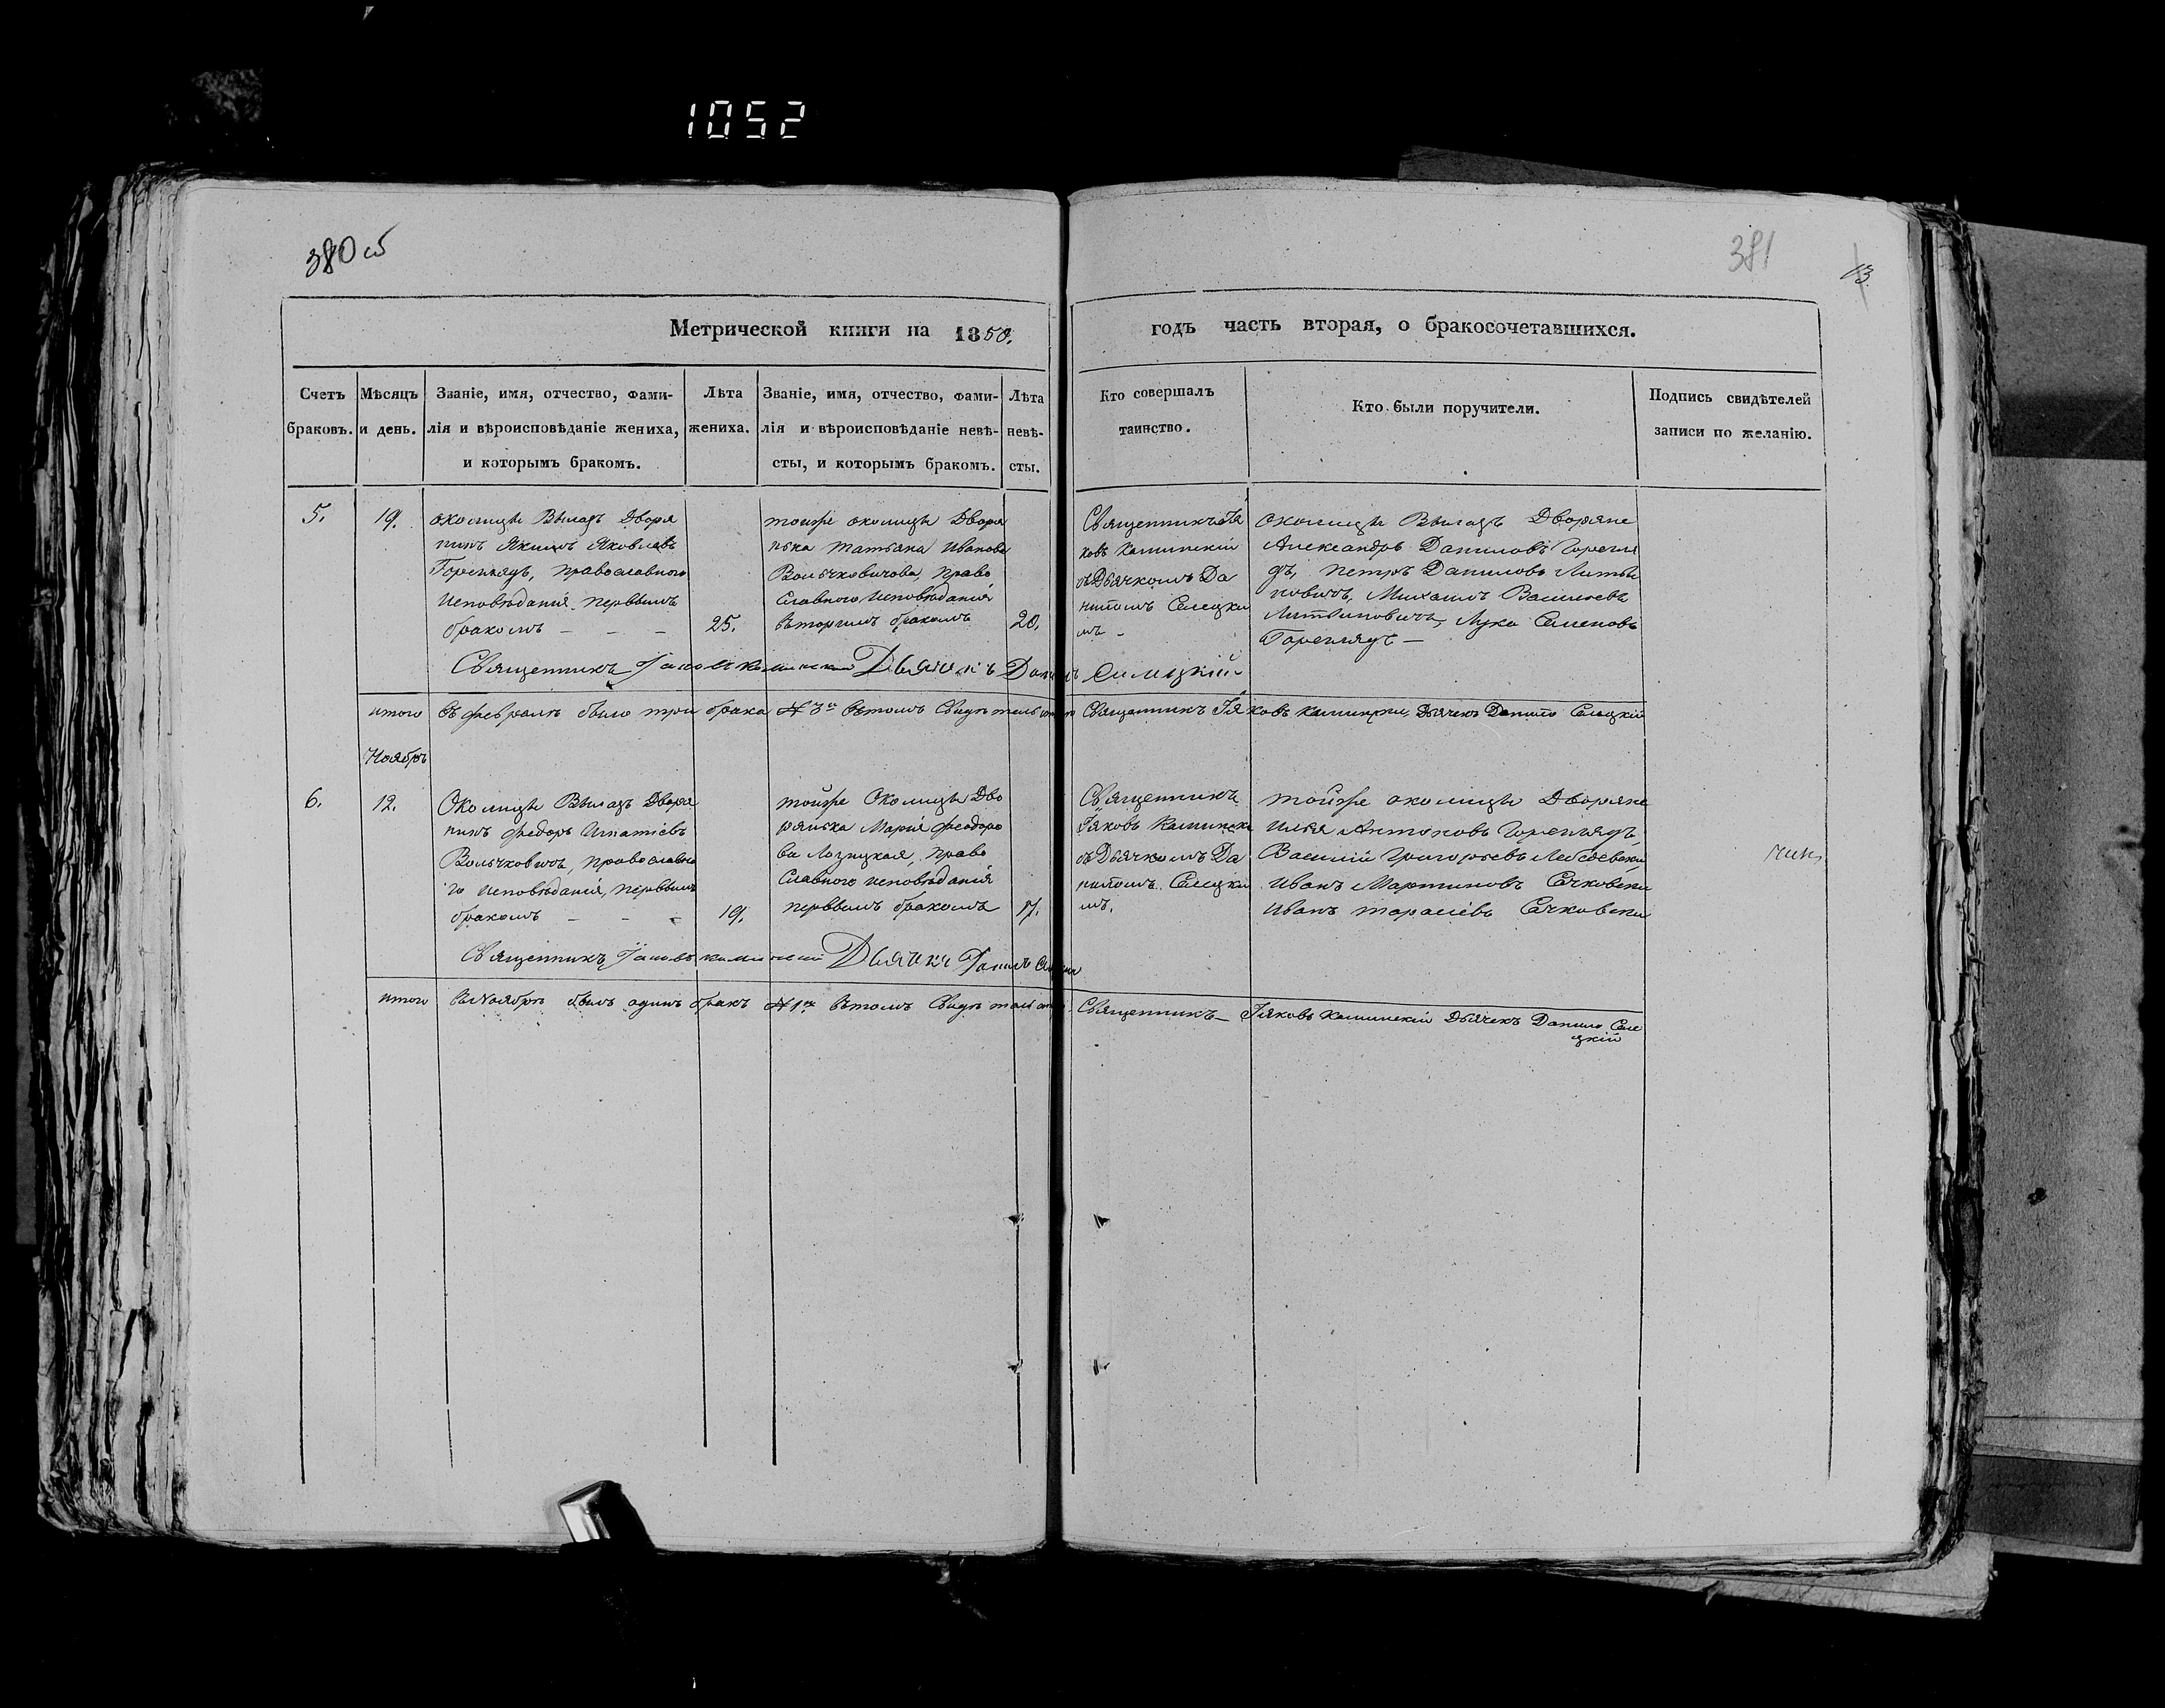 1052
380 об
381
13
Метрической книги на 1850.
годъ часть вторая, о бракосочетавшихся.
Счетъ браковъ.
Мѣсяцъ и день.
Званіе, имя, отчество, фами-
лія и вѣроисповѣданіе жениха,
и которымъ бракомъ.
Лѣта
жениха.
Званіе, имя, отчество, фами-
лія и вѣроисповѣданіе невѣ-
сты, и которымъ бракомъ.
Лѣта
невѣ-
сты.
Кто совершалъ
таинство.
Кто были поручители.
Подпись свидѣтелей
записи по желанію.
5.
19.
околицы Вылазъ Дворя
нинъ Якимъ Яковлевъ
Горегляδъ, православного
исповѣданія первымъ
бракомъ – – –
25.
тойже околицы Дворя
нка Татьяна Иванова
Вольчковичова, право
славного исповѣданія
вторимъ бракомъ
20.
Священникъ Ія
ковъ Каминскій
съ Дьячкомъ Да
ниломъ Селецки
мъ –
околицы Вылазъ Дворяне
Александръ Даниловъ Горегля
дъ, Петръ Даниловъ Литви
новичъ, Михаилъ Васильевъ
Литвиновичъ, Лука Семеновъ
Гореглядъ –
Священникъ Іаковъ Каминскій Дьячокъ Данилъ Силецкій
итого въ февралѣ было три брака № 3й вѣтомъ Свидѣтельствую Священникъ Іяковъ Каминскій, Дьячекъ Данило Селецкій
Ноябрь
6.
12.
Околицы Вылазъ Дворя
нинъ Федоръ Игнатіевъ
Вольчковичъ, православна
го исповѣданія, первымъ
бракомъ – – –
19.
тойже Околицы Дво
рянка Марія Феодоро
ва Лозицкая, право
славного исповѣданія
первымъ бракомъ
17.
Священникъ
Іяковъ Камински
съ Дьячкомъ Да
ниломъ Селецки
мъ.
тойже околицы Дворяне
Илья Антоновъ Гореглядъ,
Василій Григорьевъ Лисовски
Иванъ Мартиновъ Сачковски
Иванъ Тарасіевъ Сачковски
Священникъ Іаковъ Каминскій Дьячокъ Данилъ
итого въ Ноябрѣ былъ одинъ бракъ № 1й вѣтомъ Свидѣтельствую Священникъ – Іяковъ Каминскій Дьячекъ Данило Селе
цкій